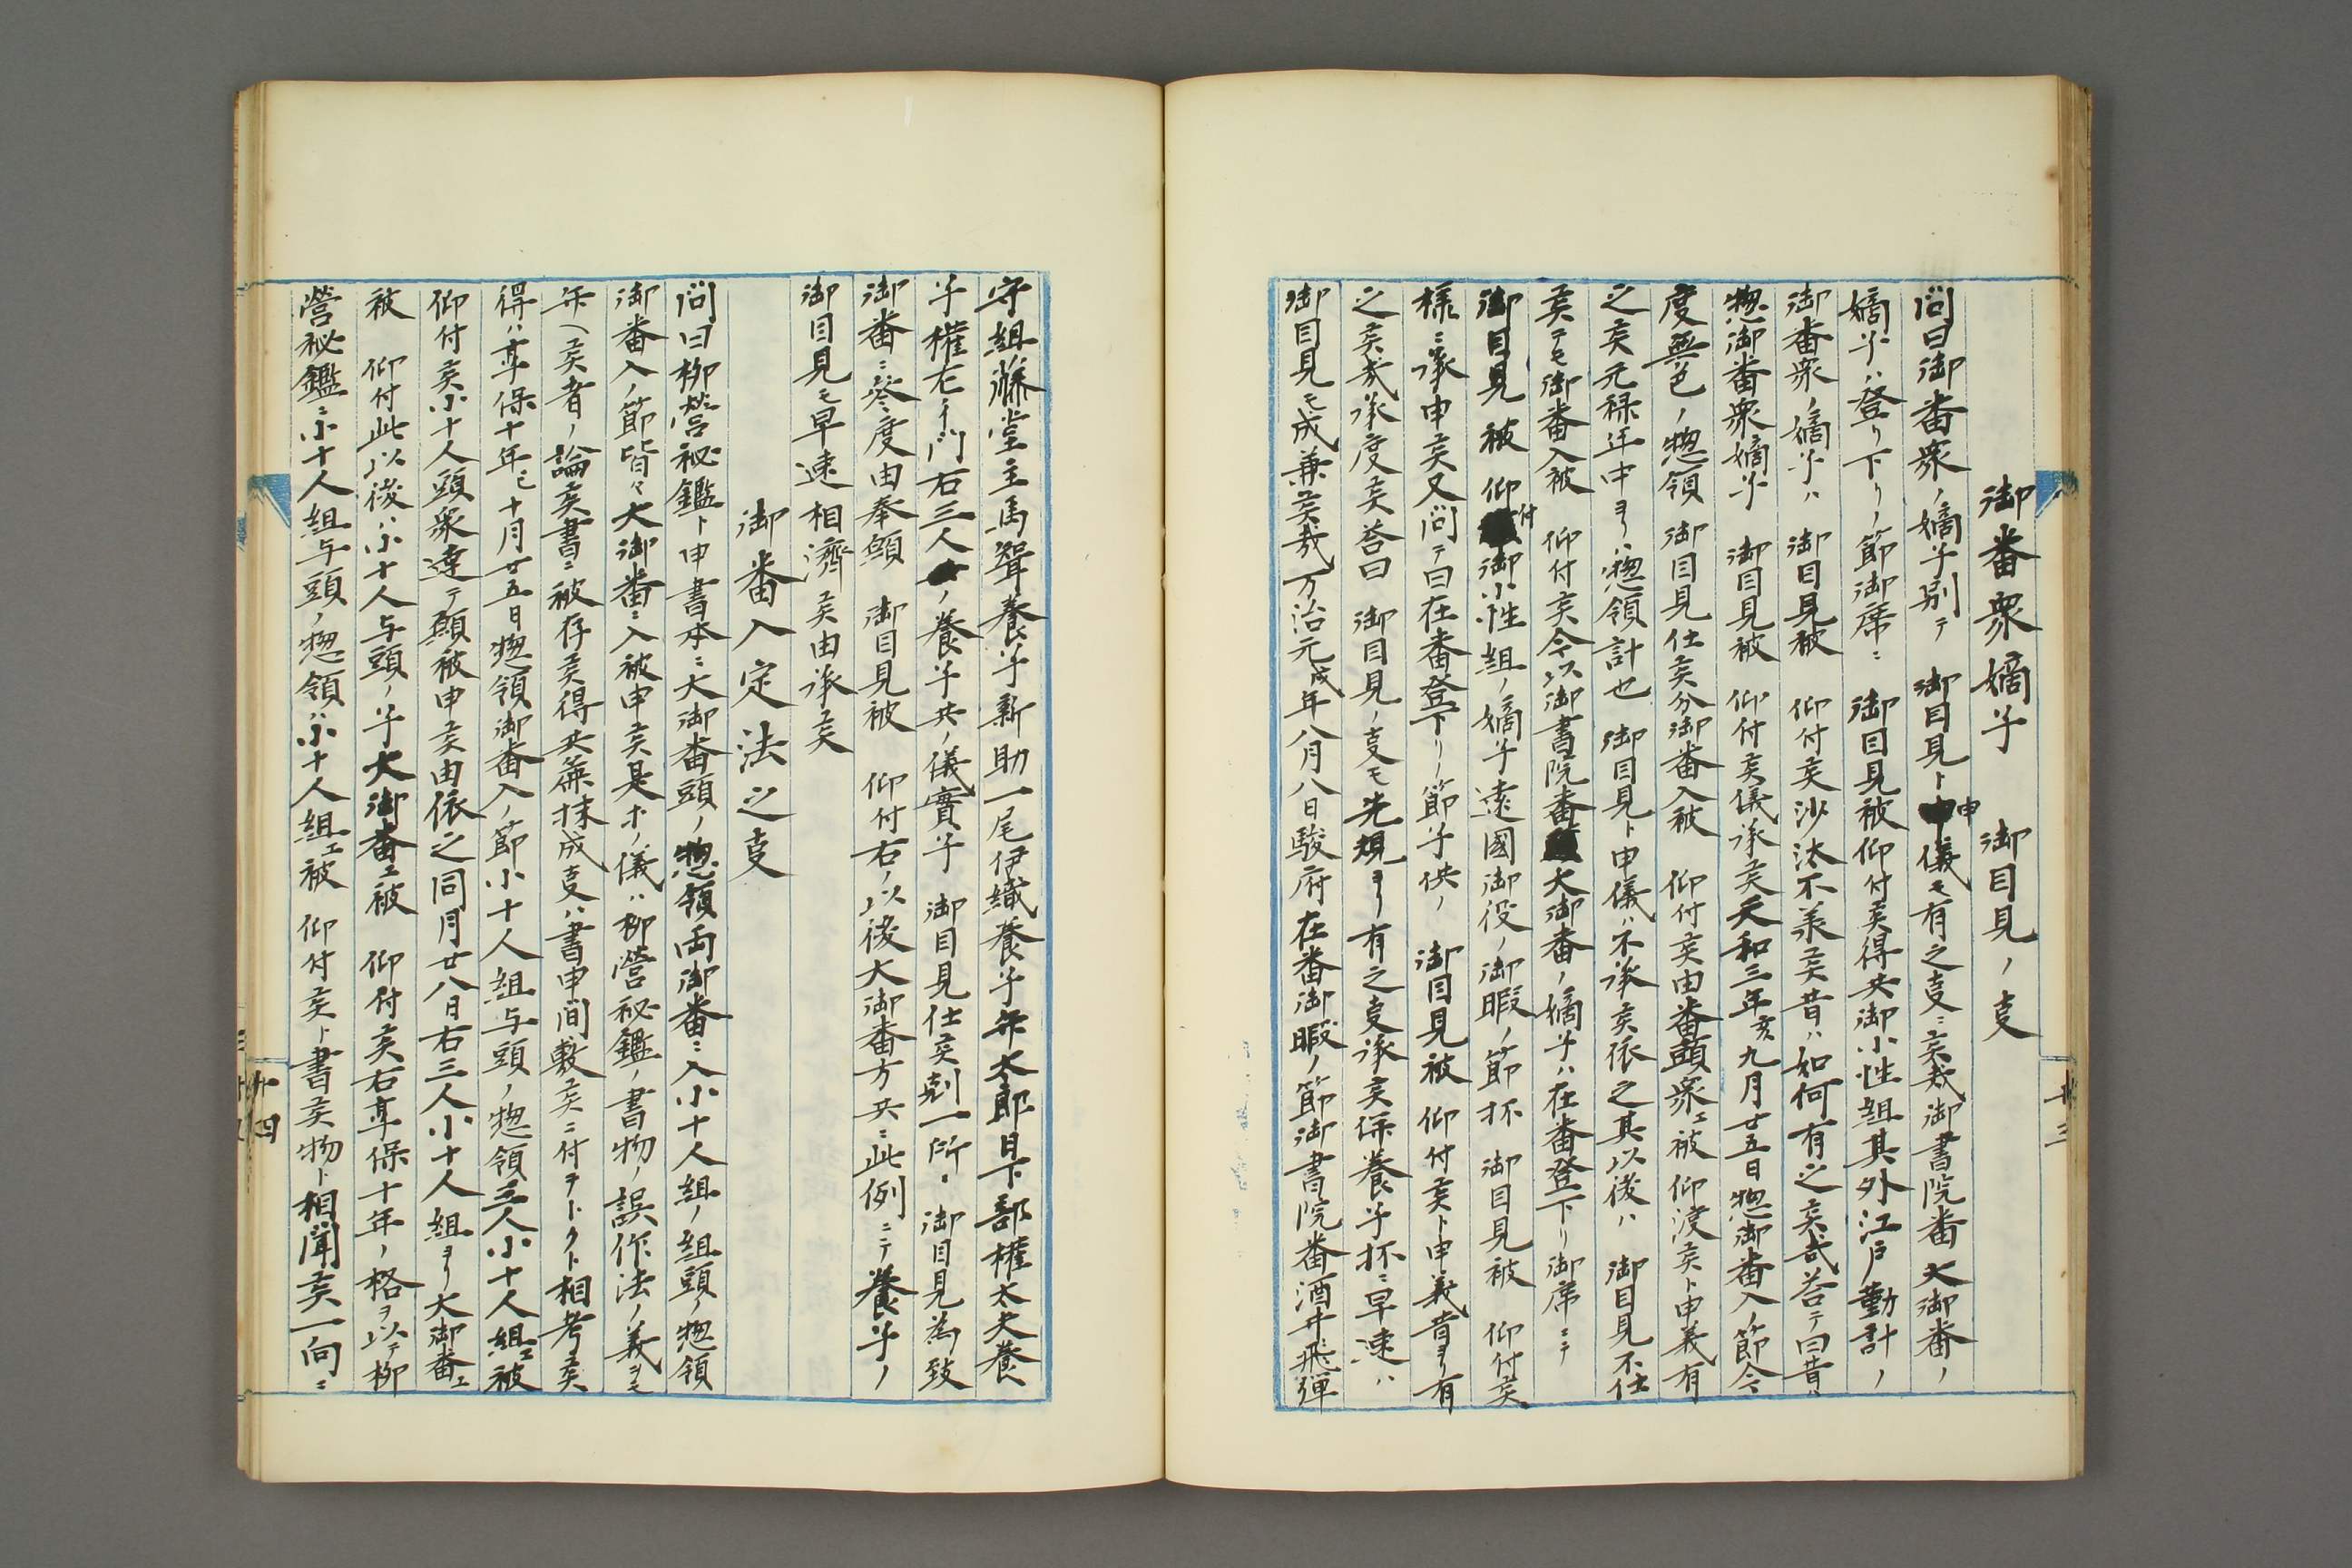 御番衆嫡子　御目見ノ叓
問曰御番衆ノ嫡子別テ　御目見ト申儀モ有之叓ニ候哉御書院番大御番ノ
嫡子ハ登リ下リノ節御席ニ　御目見被仰付候得共御小性組其外江戸勤計ノ
御番衆ノ嫡子ハ　御目見被　仰付候沙汰不承候昔ハ如何有之候哉答テ曰昔ハ
惣御番衆嫡子　御目見被　仰付候儀承候天和三年亥九月廿五日惣御番入ノ節今
度無色ノ惣領　御目見仕候分御番入被　仰付候由番頭衆エ被仰渡候ト申義有
之候元禄年中ヨリハ惣領計也　御目見ト申儀ハ不承候依之其以後ハ　御目見不仕
候テモ御番入被　仰付候今以御書院番大御番ノ嫡子ハ在番登下リ御席ニテ
御目見被　仰付御小性組ノ嫡子遠國御役ノ御暇ノ節抔　御目見被　仰付候
様ニ承申候又問テ曰在番登下リノ節子供ノ　御目見被　仰付候ト申義昔ヨリ有
之候哉承度候答曰　御目見ノ叓モ先規ヨリ有之叓承候養子抔ニ早速ハ
御目見モ成兼候哉万治元戌年八月八日駿府在番御暇ノ節御書院番酒井飛弾
守組藤堂主馬聟養子新助一尾伊織養子弥太郎日下部権太夫養
子権左ヱ門右三人ノ養子共ノ儀實子　御目見仕候刻一所ニ　御目見為致
御番ニ登度由奉願　御目見被　仰付右ノ以後大御番方共ニ此例ニテ養子ノ
御目見モ早速相濟候由承候
御番入定法之叓
問曰栁営秘鑑ト申書本ニ大御番頭ノ惣領両御番ニ入小十人組ノ組頭ノ惣領
御番入ノ節皆々大御番ニ入被申候是ホノ儀ハ栁營秘鑑ノ書物ノ誤作法ノ義ヲモ
弁ヘ候者ノ論候書ニ被存候得共麁抹成叓ハ書申間敷候ニ付ヲトクト相考候
得ハ享保十年巳十月廿五日惣領御番入ノ節小十人組与頭ノ惣領三人小十人組エ被
仰付候小十人頭衆達テ願被申候由依之同月廿八日右三人小十人組ヨリ大御番エ
被　仰付此以後ハ小十人与頭ノ子大御番エ被　仰付候右享保十年ノ格ヲ以テ栁
營秘鑑ニ小十人組与頭ノ惣領ハ小十人組エ被　仰付候ト書候物ト相聞候一向ニ
卅四